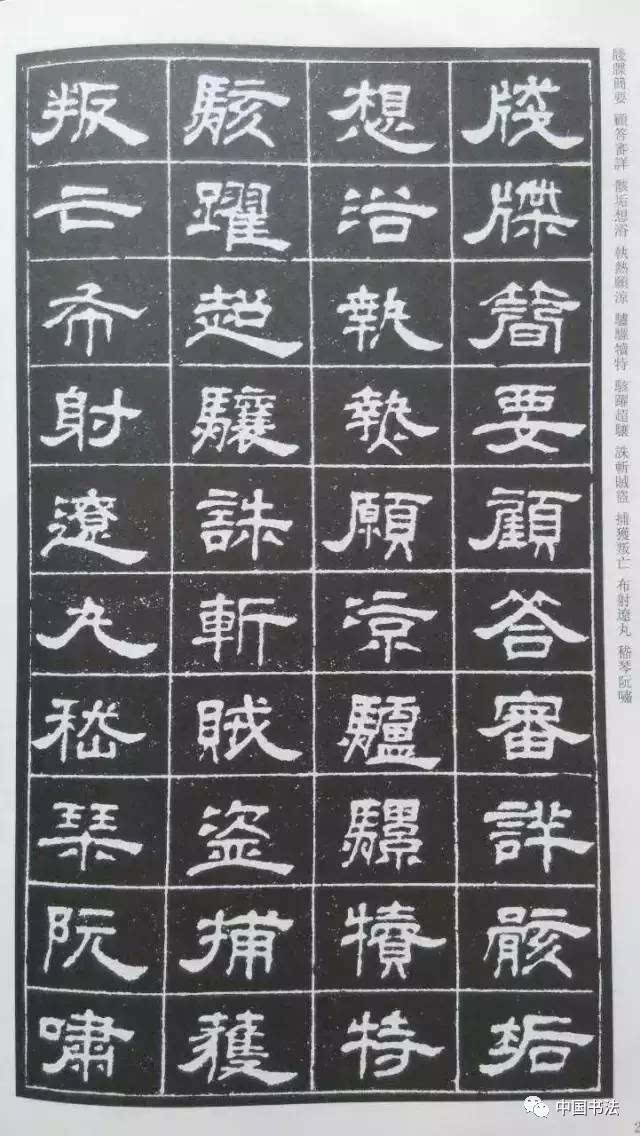 牋牒簡要 顧答審詳 骸垢想浴 執熱願涼 驢騾犢特 駭躍超驤 誅斬賊盜 捕獲叛亡 布射遼丸 嵇琴阮嘯
牋牒簡要顧答審詳骸垢
想浴執熱願涼驢騾犢特
駭躍超驤誅斬賊盜捕獲
叛亡布射遼丸嵇琴阮嘯
中国书法